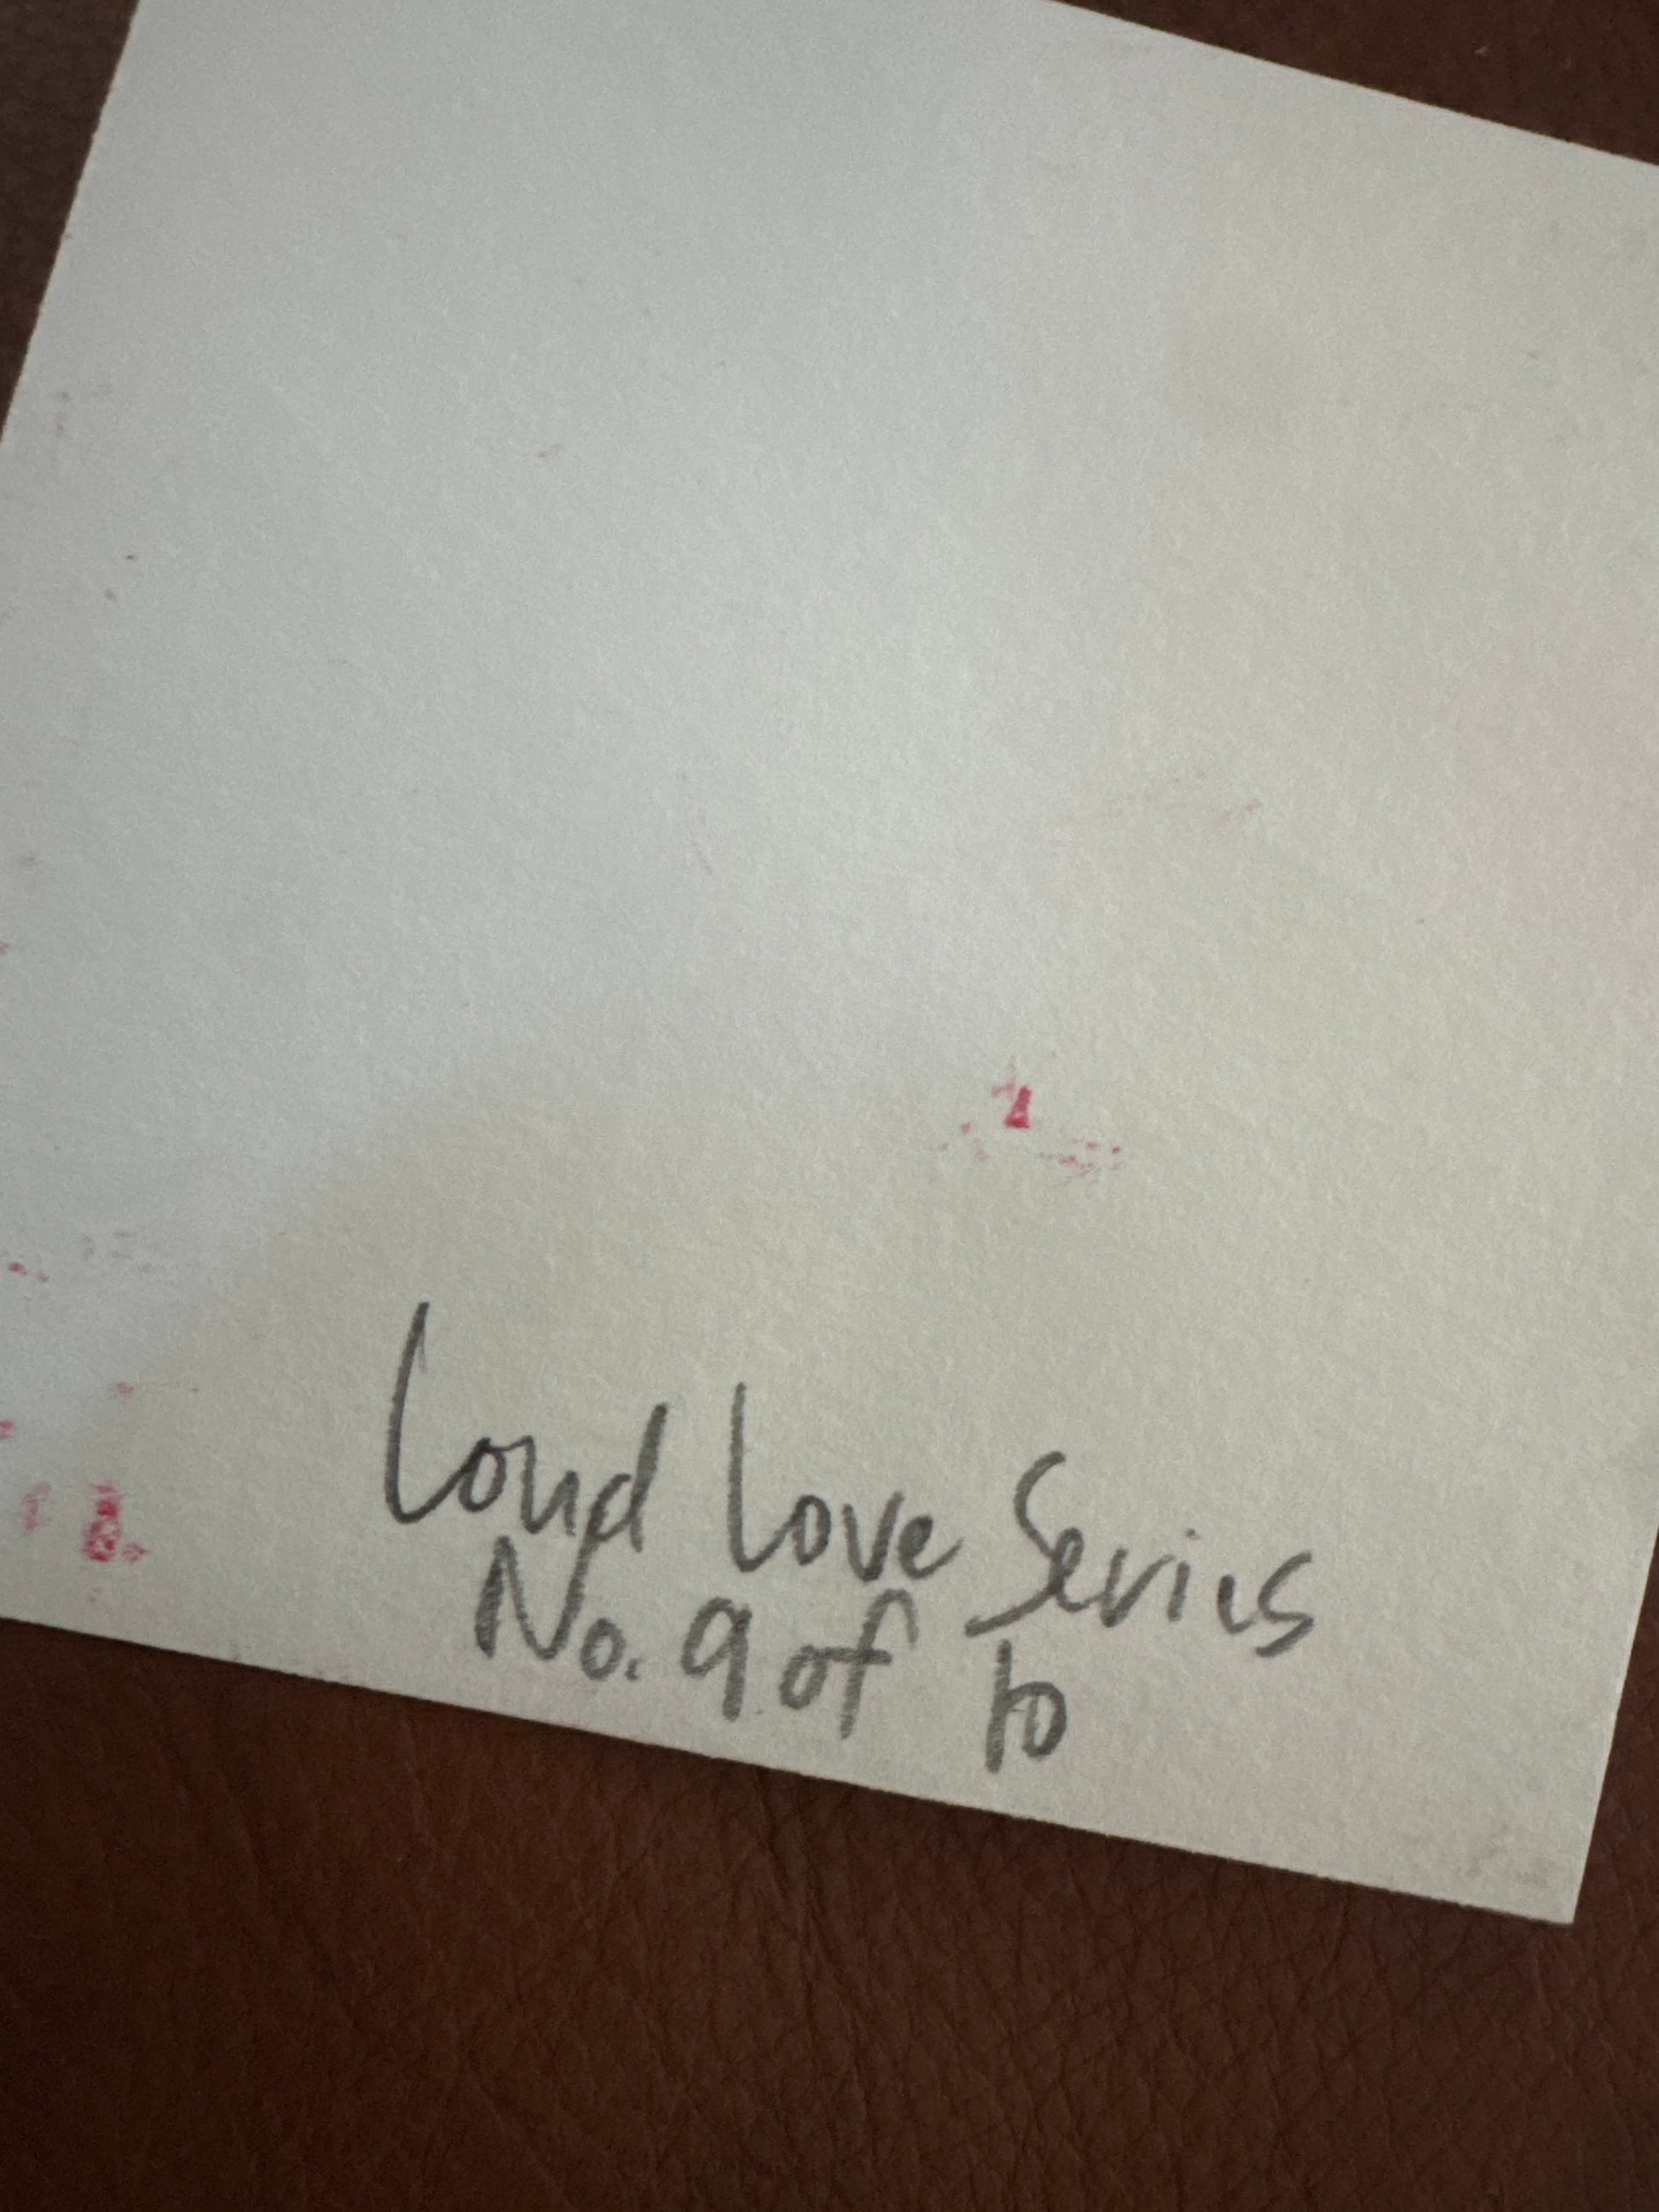 Loud Love Series
No. 9 of 10